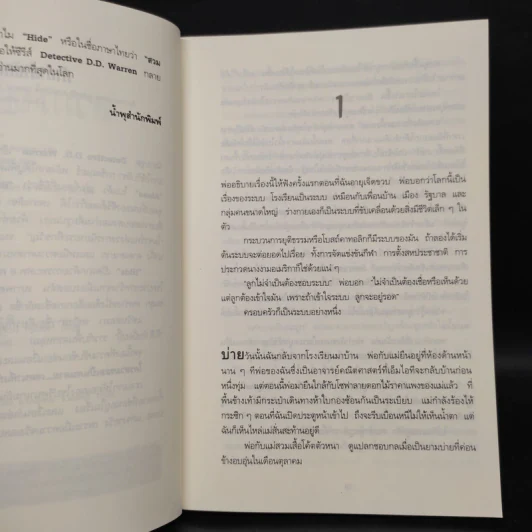 "Hide" หรือในชื่อภาษาไทยว่า "สวม
ให้ซีรีส์ Detective D.D. Warren กลาย
อ่านมากที่สุดในโลก
น้ำพุสำนักพิมพ์
1
พ่ออธิบายเรื่องนี้ให้ฟังครั้งแรกตอนที่ฉันอายุเจ็ดขวบ พ่อบอกว่าโลกนี้เป็น
เรื่องของระบบ โรงเรียนเป็นระบบ เหมือนกับเพื่อนบ้าน เมือง รัฐบาล และ
กลุ่มคนขนาดใหญ่ ร่างกายเองก็เป็นระบบที่ขับเคลื่อนด้วยสิ่งมีชีวิตเล็ก ๆ ใน
ตัว
กระบวนการยุติธรรมหรือโบสถ์คาทอลิกก็มีระบบของมัน ถ้าลองได้เริ่ม
ต้นระบบจะต่อยอดไปเรื่อย ทั้งการจัดแข่งขันกีฬา การตั้งสหประชาชาติ การ
ประกวดนางงามอเมริกาก็ใช่ด้วยแน่ ๆ
"ลูกไม่จำเป็นต้องชอบระบบ" พ่อบอก "ไม่จำเป็นต้องเชื่อหรือเห็นด้วย
แต่ลูกต้องเข้าใจมัน เพราะถ้าเข้าใจระบบ ลูกจะอยู่รอด"
ครอบครัวก็เป็นระบบอย่างหนึ่ง
บ่ายวันนั้นฉันกลับจากโรงเรียนมาบ้าน พ่อกับแม่ยืนอยู่ที่ห้องด้านหน้า
นาน ๆ ทีพ่อของฉันซึ่งเป็นอาจารย์คณิตศาสตร์ที่เอ็มไอทีจะกลับบ้านก่อน
หนึ่งทุ่ม แต่ตอนนี้พ่อมายืนใกล้กับโซฟาลายดอกไม้ราคาแพงของแม่แล้ว ที่
พื้นข้างเท้ามีกระเป๋าเดินทางห้าใบกองซ้อนกันเป็นระเบียบ แม่กำลังร้องไห้
กระซิก ๆ ตอนที่ฉันเปิดประตูหน้าเข้าไป ถึงจะรีบเบือนหนีไม่ให้เห็นน้ำตา แต่
ฉันก็เห็นไหล่แม่สั่นสะท้านอยู่ดี
พ่อกับแม่สวมเสื้อโค้ตตัวหนา ดูแปลกชอบกลเมื่อเป็นยามบ่ายที่ค่อน
ข้างอบอุ่นในเดือนตุลาคม